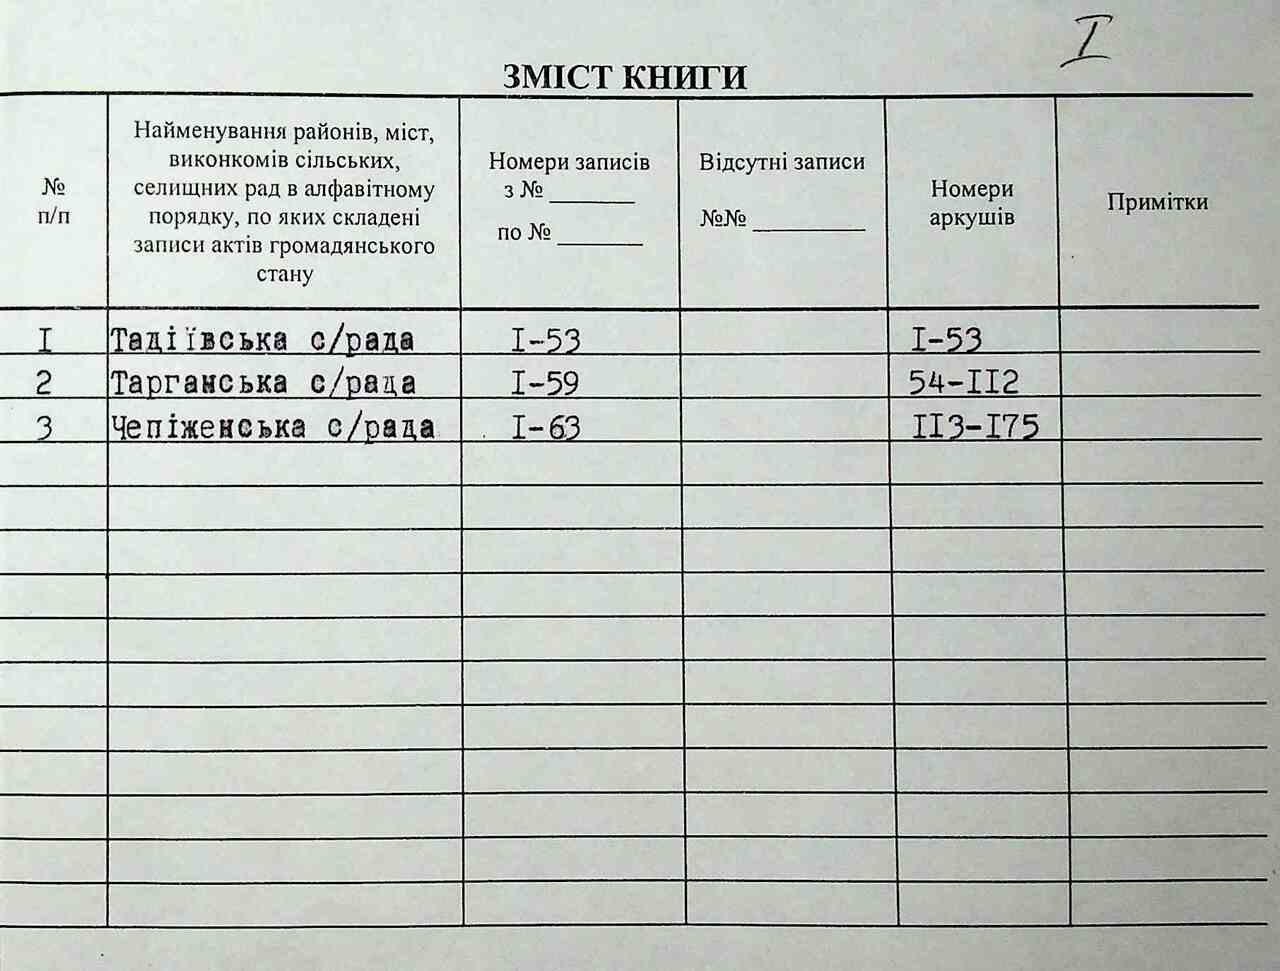 I
ЗМІСТ КНИГИ
№
п/п
Найменування районів, міст,
виконкомів сільських,
селищних рад в алфавітному
порядку, по яких складені
записи актів громадянського
стану
Номери записів
з № _______
по № _______
Відсутні записи
№№ _________
Номери
аркушів
Примітки
I Тадіївська с/рада I-53 I-53
2 Тарганська с/рада I-59 54-II2
3 Чепіженська с/рада I-63 II3-I75